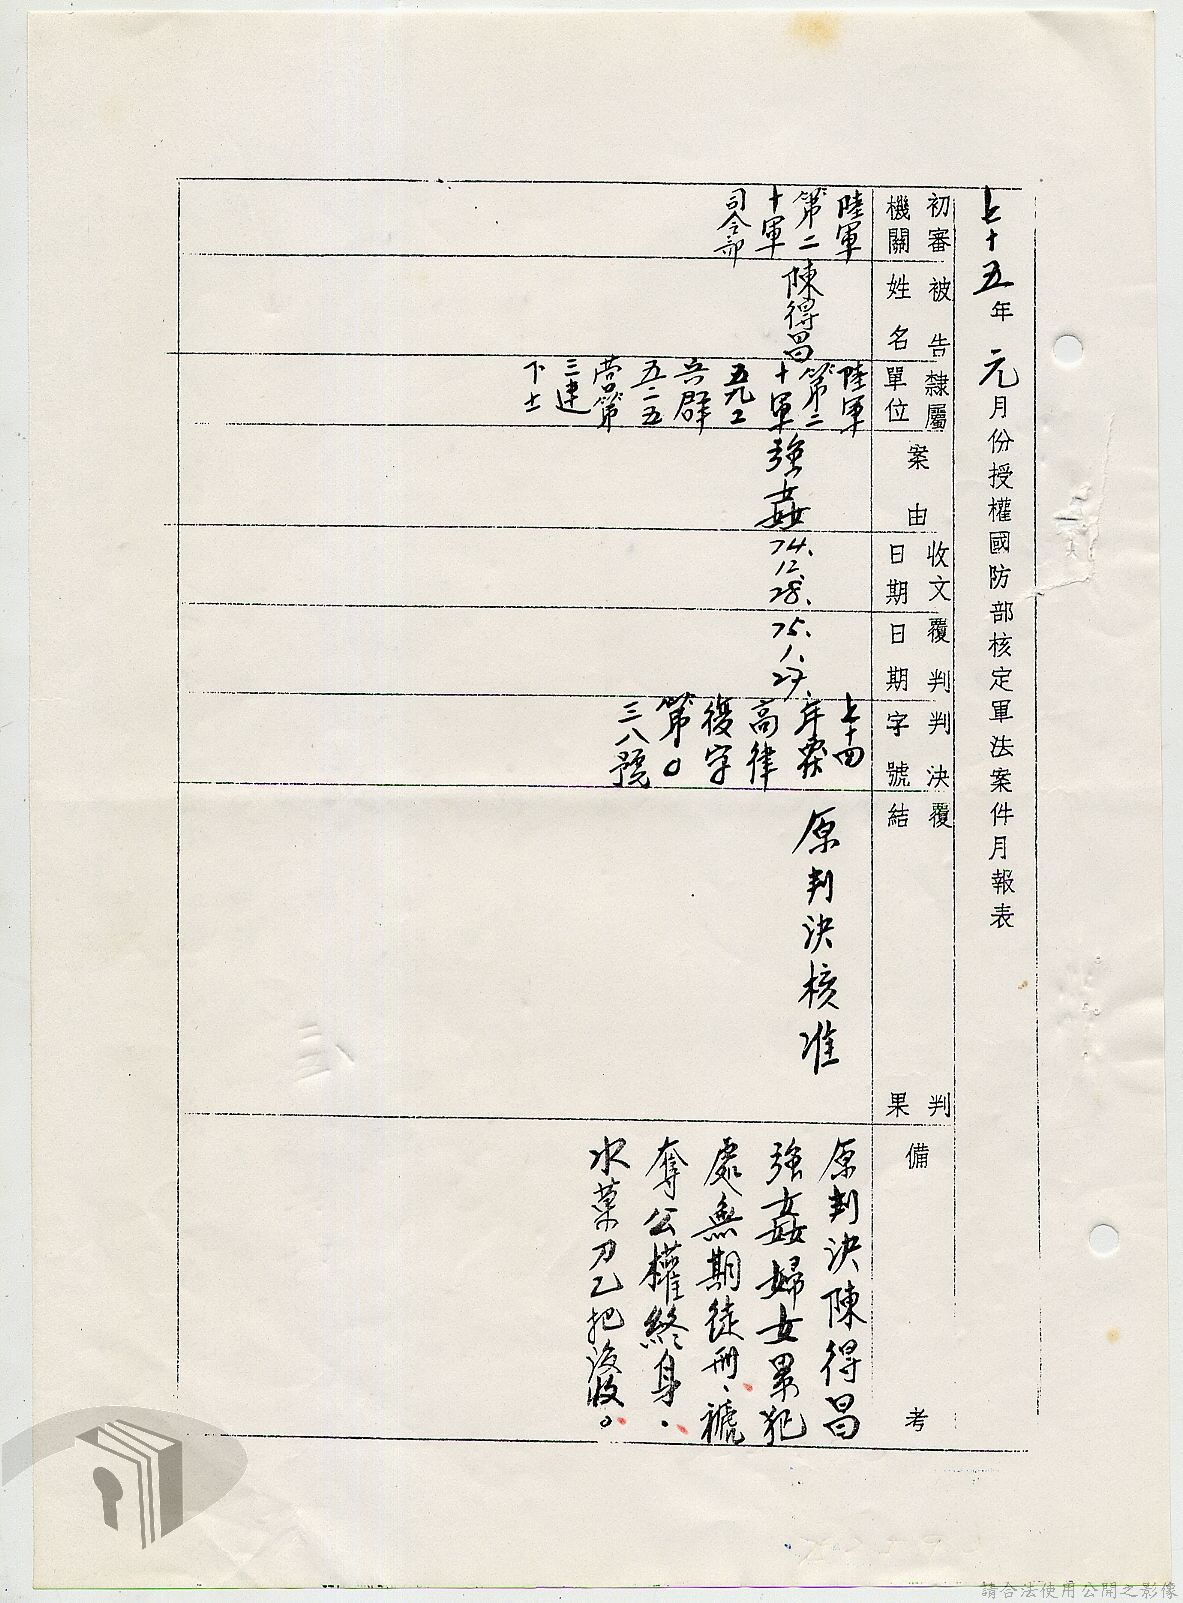 七十五年元月份授權國防部核定軍法案件月報表
初審
機關
被告
姓名
隸屬
單位
案由
收文
日期
覆判
日期
判決
字號
覆判
結果
備考
陸軍
第二
十軍
司令部
陳得昌
陸軍
第二
十軍
五九工
兵群
五二五
營第
三連
下士
強姦
74.
12.
28.
75.
1.
27.
七十四
年
高律
復字
第0
三八號
原判決核准
原判決陳得昌
強姦婦女累犯
處無期徒刑、褫
奪公權終身。
水菓刀乙把沒收。
請合法使用公開之影像